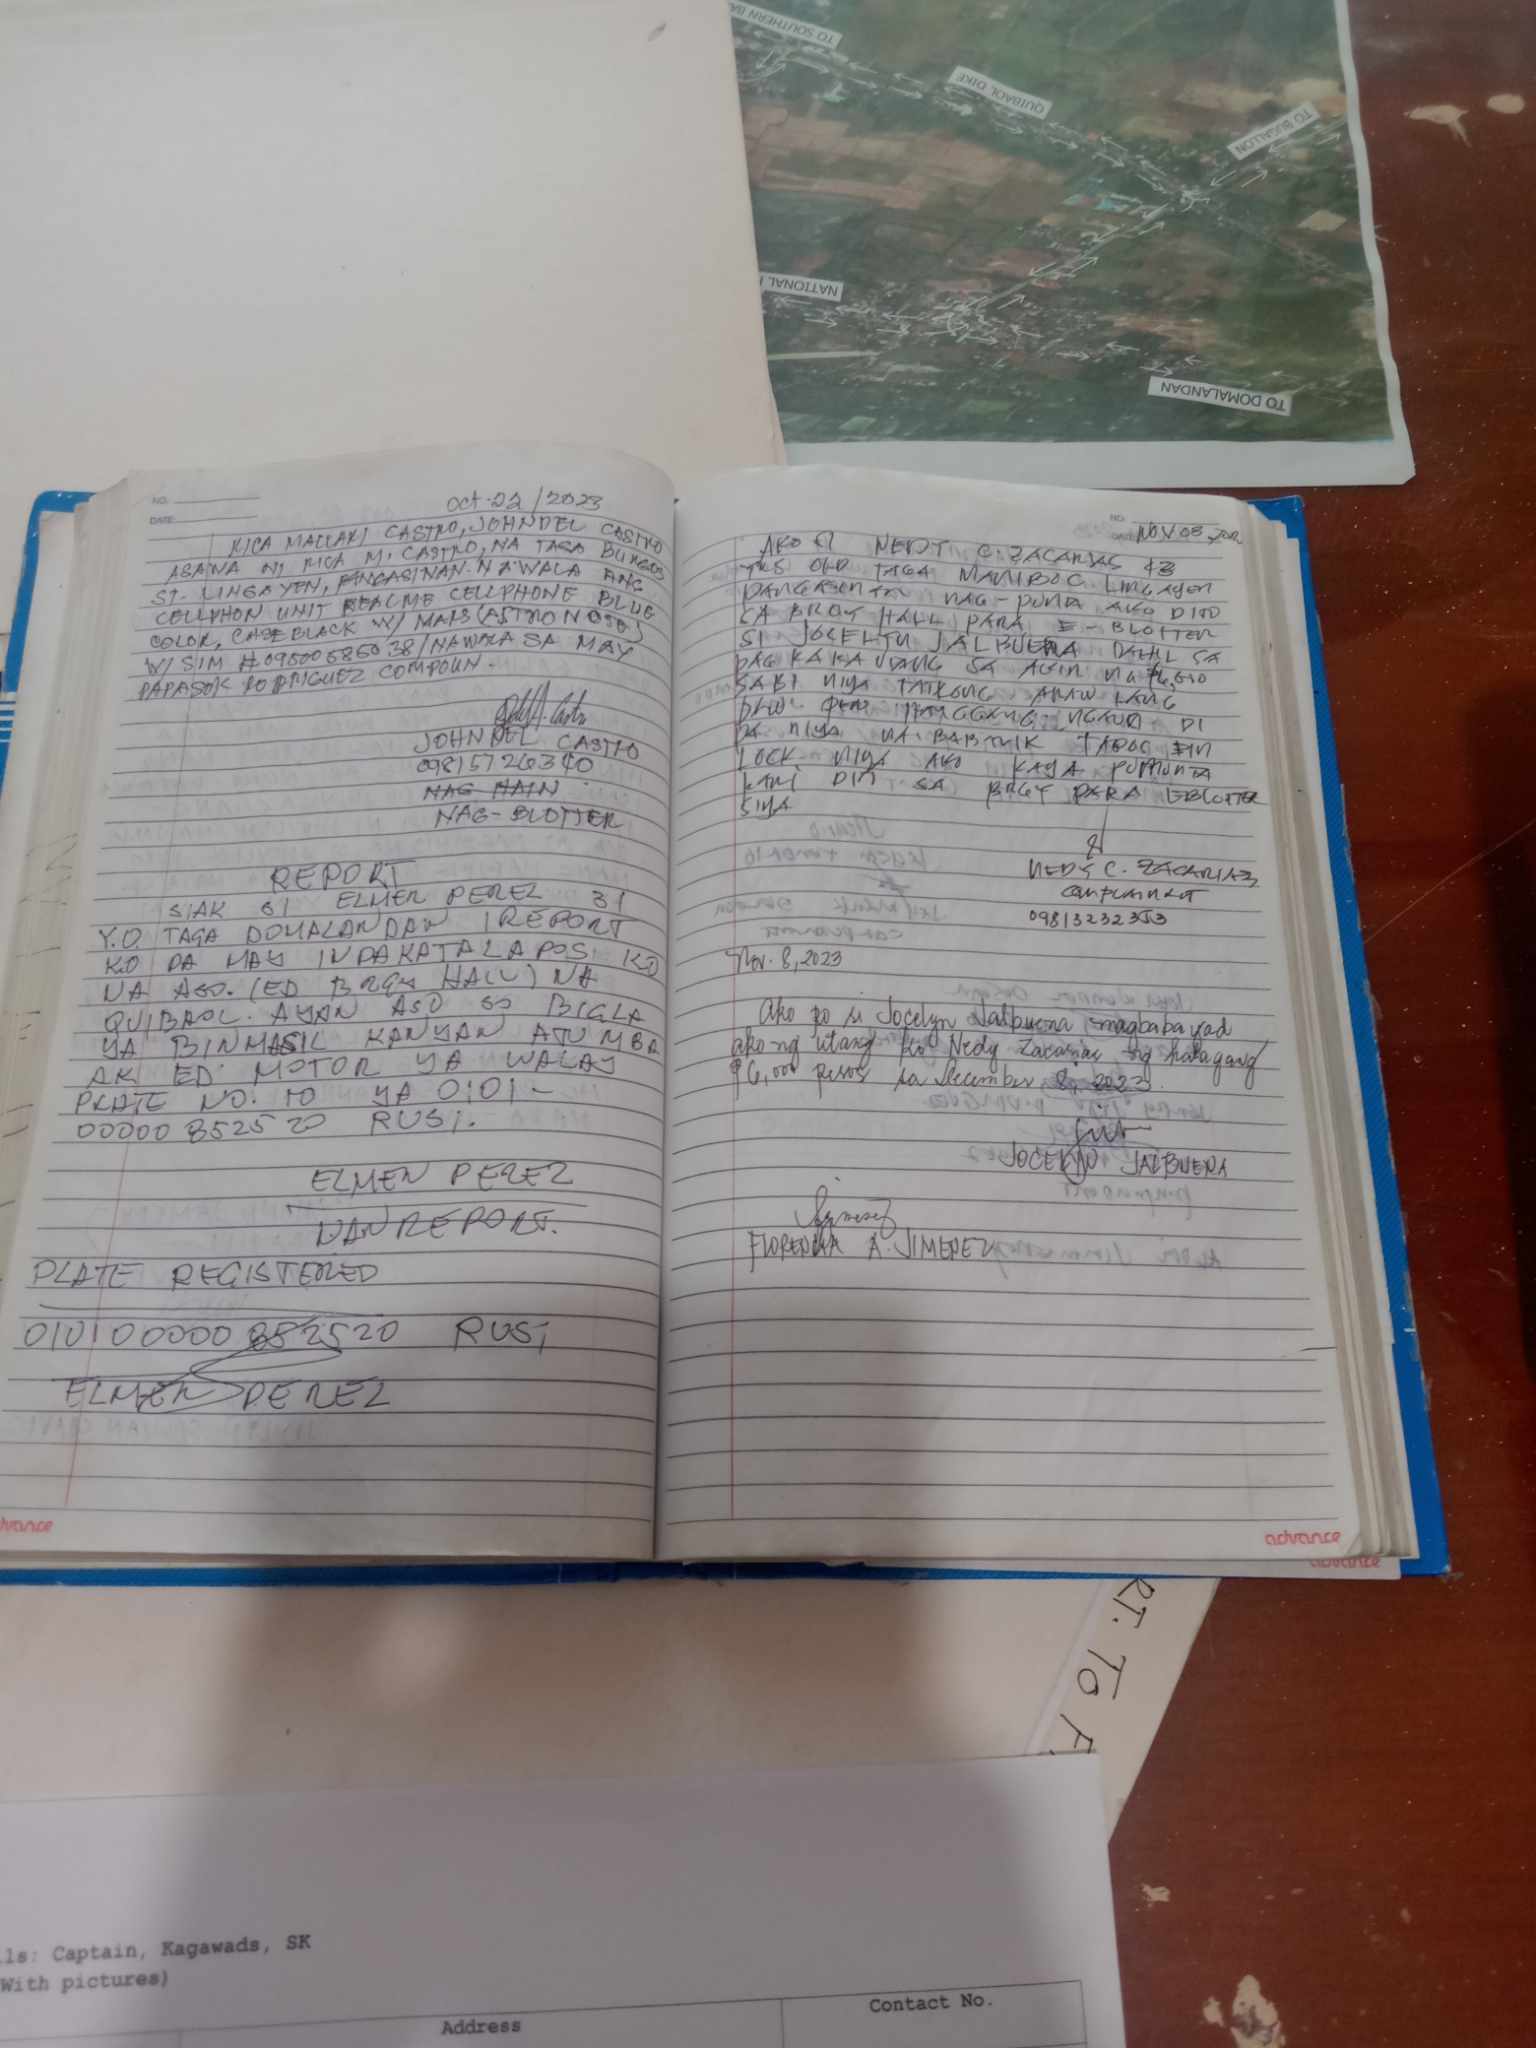 TO SOUTHERN BA
QUIBAOL DIKE
TO BUGALLON
NATIONAL
TO DOMALANDAN
NO.
DATE
Oct-22/2023
RICA MALLARI CASTRO, JOHNDEL CASTRO
ASAWA NI RICA M. CASTRO, NA TAGA BURGOS
ST. LINGAYEN, PANGASINAN. NAWALA ANG
CELLPHON UNIT REALME CELLPHONE BLUE
COLOR, CASE BLACK W/ MARS (ASTRO NOSE)
W/ SIM # /NAWALA SA MAY
PAPASOK RODRIGUEZ COMPOUN.
JOHNDEL CASTRO
NAG HAIN
NAG-BLOTTER
REPORT
SIAK SI ELMER PEREZ 31
Y.O. TAGA DOMALANDAN IREPORT
KO PA MAY INPAKATALAPOSI KO
NA ASO. (ED BRGY HALL) NA
QUIBAOL. AYAN ASO SO BIGLA
YA BINMASIL KANYAN ATUMBA
AK ED MOTOR YA WALAY
PLATE NO. TO YA 0101-
00000852520 RUSI.
ELMER PEREZ
NANREPORT.
PLATE REGISTERED
010100000852520 RUSI
ELMER PEREZ
advance
NOV. 08,
AKO SI NEDY C. ZACARIAS 43
YRS OLD TAGA MANIBOC LINGAYEN
PANGASINAN NAG-PUNTA AKO DITO
SA BRGY HALL PARA E-BLOTTER
SI JOCELYN JALBUENA DAHIL SA
PAG KAKA UTANG SA AKIN NA
SABI NIYA TATLONG ARAW LANG
HANGGANG NGAUN DI
PA NIYA NA BABALIK TAPOS BIN
LOCK NIYA AKO KAYA PUMUNTA
KAMI DITO SA BRGY PARA EBLOTTER
SIYA
NEDY C. ZACARIAS
COMPLAINANT
09813232353
Nov. 8, 2023
Ako po si Jocelyn Jalbuena magbabayad
ako ng utang ko Nedy Zacarias ng halagang
₱6,000 pesos sa December 8, 2023.
JOCELYN JALBUENA
FLORENDA A. JIMENEZ
advance
advance
RT. TO
ls: Captain, Kagawads, SK
With pictures)
Address
Contact No.